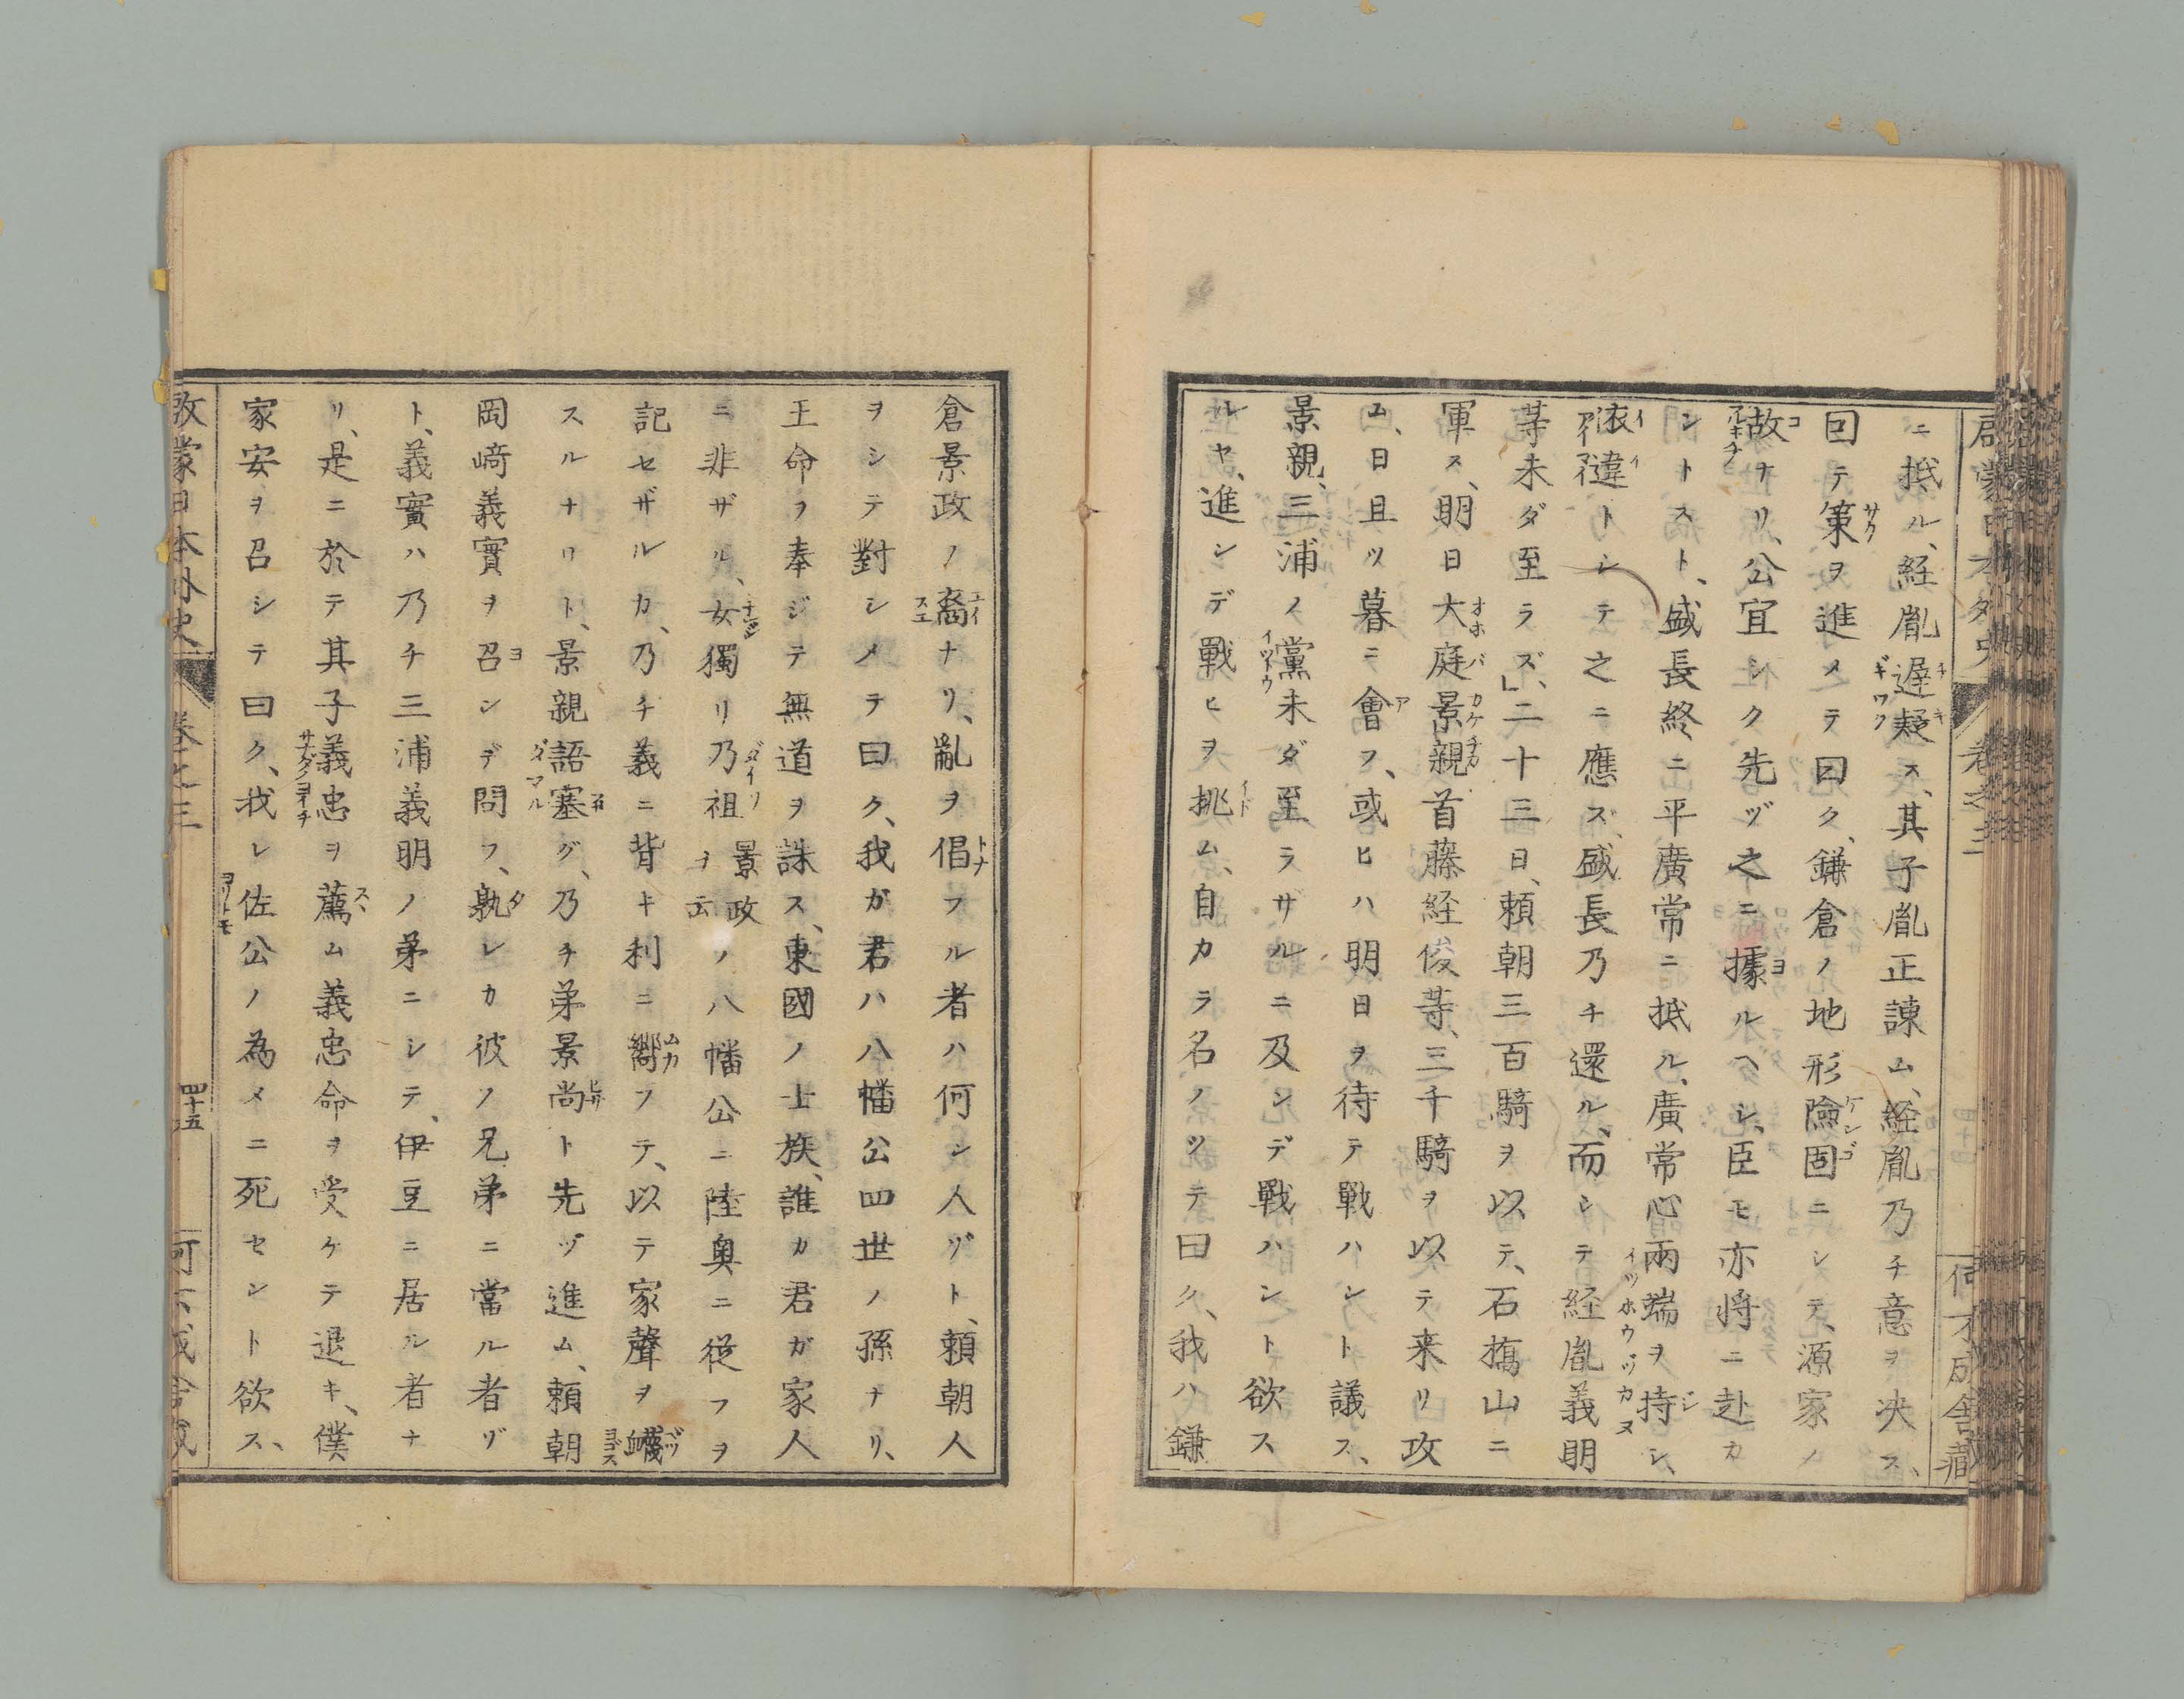 ニ抵ル、経胤遅疑ス、其子胤正諌ム、経胤乃チ意ヲ决ス、
回テ策ヲ進メテ曰ク、鎌倉ノ地形險固ニシテ、源家ノ
故ナリ、公宜シク先ヅ之ニ據ルヘシ、臣モ亦将ニ赴カ
ントスト、盛長終ニ平廣常ニ抵ル、廣常心兩端ヲ持シ、
依違トシテ之ニ應ス、盛長乃チ還ル、而シテ経胤義明
等未ダ至ラズ、」二十三日、頼朝三百騎ヲ以テ、石橋山ニ
軍ス、明日大庭景親首藤経俊等、三千騎ヲ以テ来リ攻
ム、日且ツ暮ニ會フ、或ヒハ明日ヲ待テ戰ハント議ス、
景親、三浦ノ黨未ダ至ラザルニ及ンデ戰ハント欲ス
ルヤ、進ンデ戰ヒヲ挑ム、自カラ名ノツテ曰ク、我ハ鎌
倉景政ノ裔ナリ、亂ヲ倡フル者ハ何ン人ヅト、頼朝人
ヲシテ對シメテ曰ク、我ガ君ハ八幡公四世ノ孫ナリ、
王命ヲ奉ジテ無道ヲ誅ス、東國ノ士族、誰カ君ガ家人
ニ非ザル、女獨リ乃祖景政ヲ云ノ八幡公ニ陸奥ニ從フヲ
記セザルカ、乃チ義ニ背キ利ニ嚮フテ、以テ家聲ヲ衊
スルナリト、景親語塞グ、乃チ弟景尚ト先ヅ進ム、頼朝
岡﨑義實ヲ召ンデ問フ、孰レカ彼ノ兄弟ニ當ル者ゾ
ト、義實ハ乃チ三浦義明ノ弟ニシテ、伊豆ニ居ル者ナ
リ、是ニ於テ其子義忠ヲ薦ム義忠命ヲ受ケテ退キ、僕
家安ヲ召シテ曰ク、我レ佐公ノ為メニ死セント欲ス、
啟蒙日本外史 卷之三 四十五